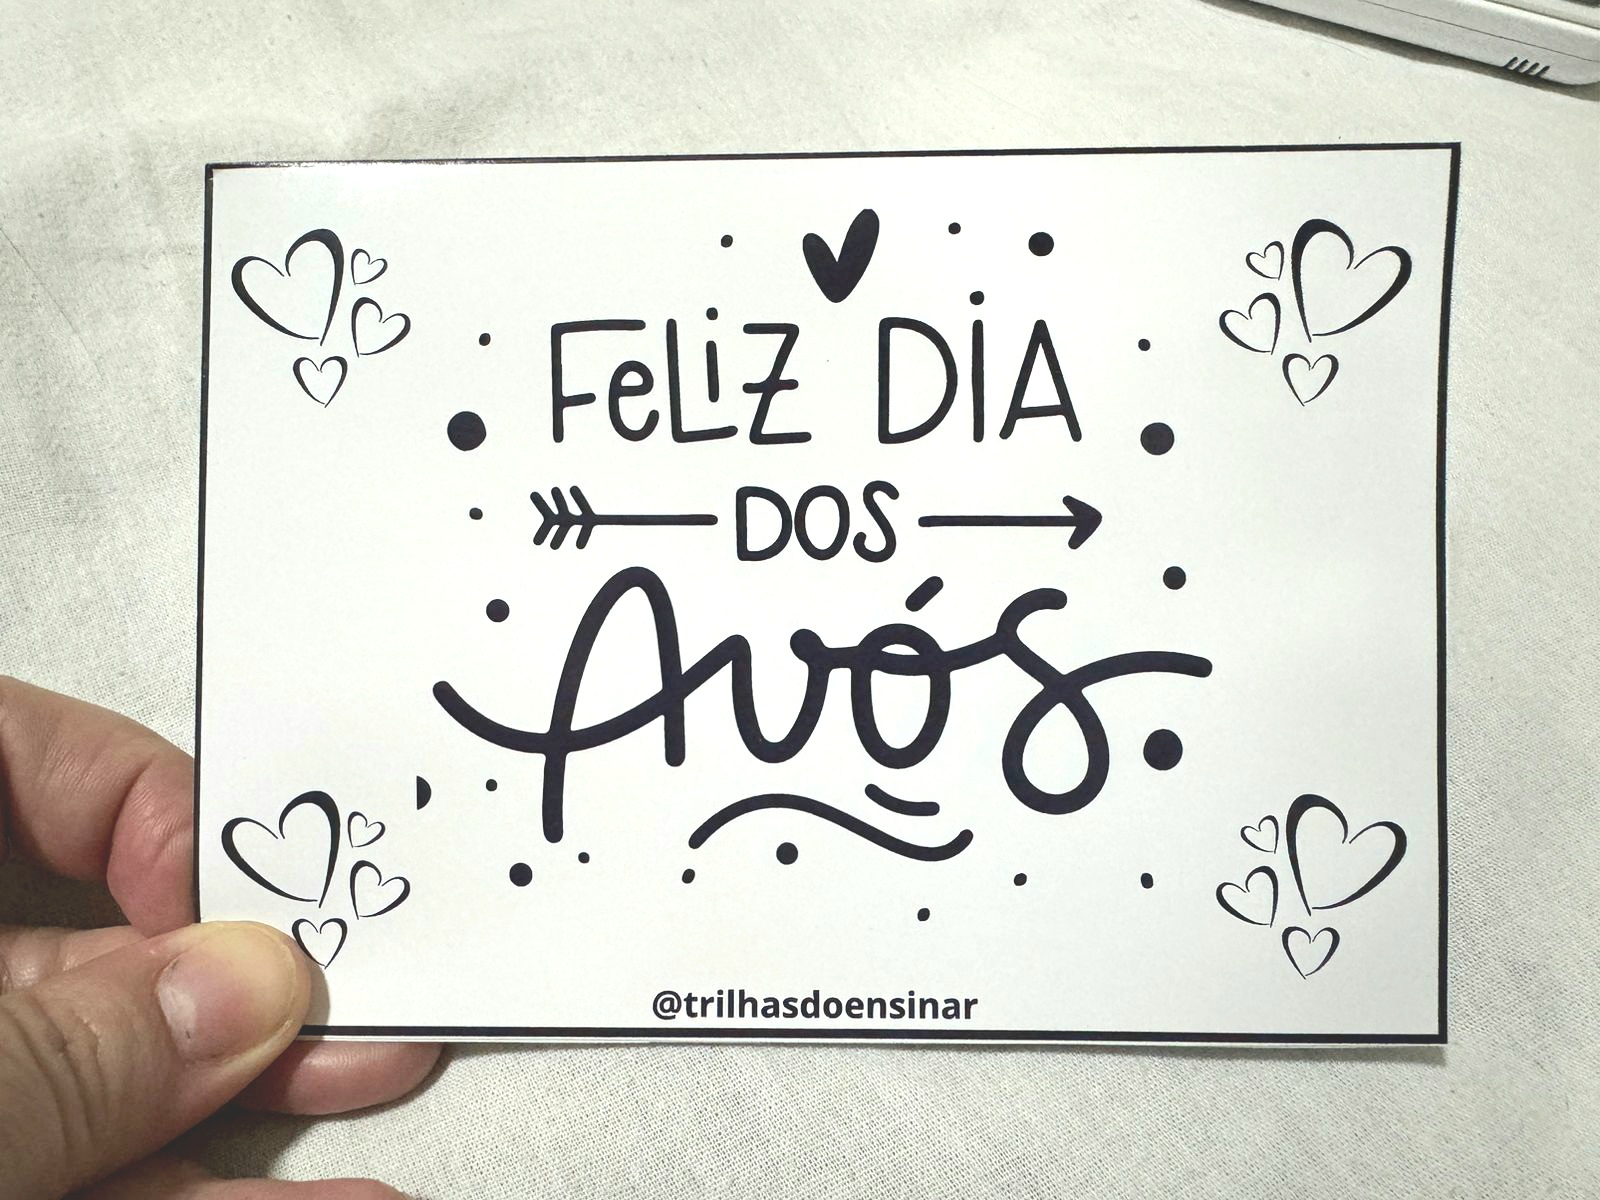 FeLiZ DiA
DOS
Avós
@trilhasdoensinar